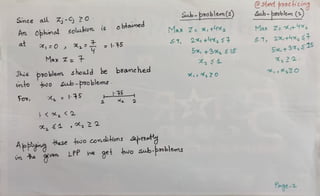 Since all Zj-Cj ≥0
An Optimal solution is obtained
at x₁=0, x₂ = 7/4 = 1.75
Max Z = 7
This problem should be branched
into two sub-problems
For, x₂ = 1.75
1.75
1 x₂ 2
1 < x₂ < 2
x₂ ≤ 1, x₂ ≥ 2
Applying these two conditions separately
in the given LPP we get two sub-problems
Sub-problem(1)
Max Z = x₁+4x₂
S.T. 2x₁+4x₂ ≤ 7
5x₁+3x₂ ≤ 15
x₂ ≤ 1
x₁, x₂ ≥ 0
@start practicing
Sub-problem(2)
Max Z = x₁+4x₂
S.T. 2x₁+4x₂ ≤ 7
5x₁+3x₂ ≤ 15
x₂ ≥ 2
x₁, x₂ ≥ 0
Page-2